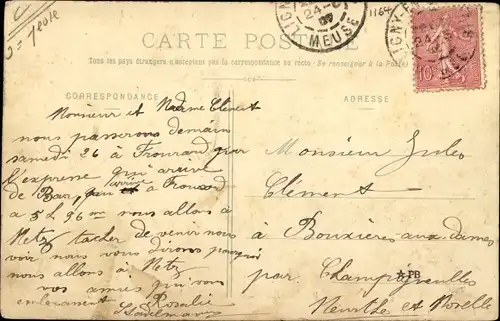 1164
LIGNY-E
24
MEUSE
CARTE POSTALE
Tous les pays étrangers n'acceptent pas la correspondance au recto. (Se renseigner à la Poste)
CORRESPONDANCE
Monsieur et Madame Clément
nous passerons demain
samedi 26 à Frouard par
l'expresse qui arrive
de Bar, qui arrive à Frouard
à 5 h 96 m nous allons à
Metz tacher de venir nous
voir nous vous dirons pourquoi
nous allons à Metz
vos amies qui vous
embrassent Rosalie
ADRESSE
Monsieur Jules
Clément
à Bouxières aux dames
par Champigneulles
APB
Meurthe et Moselle
10